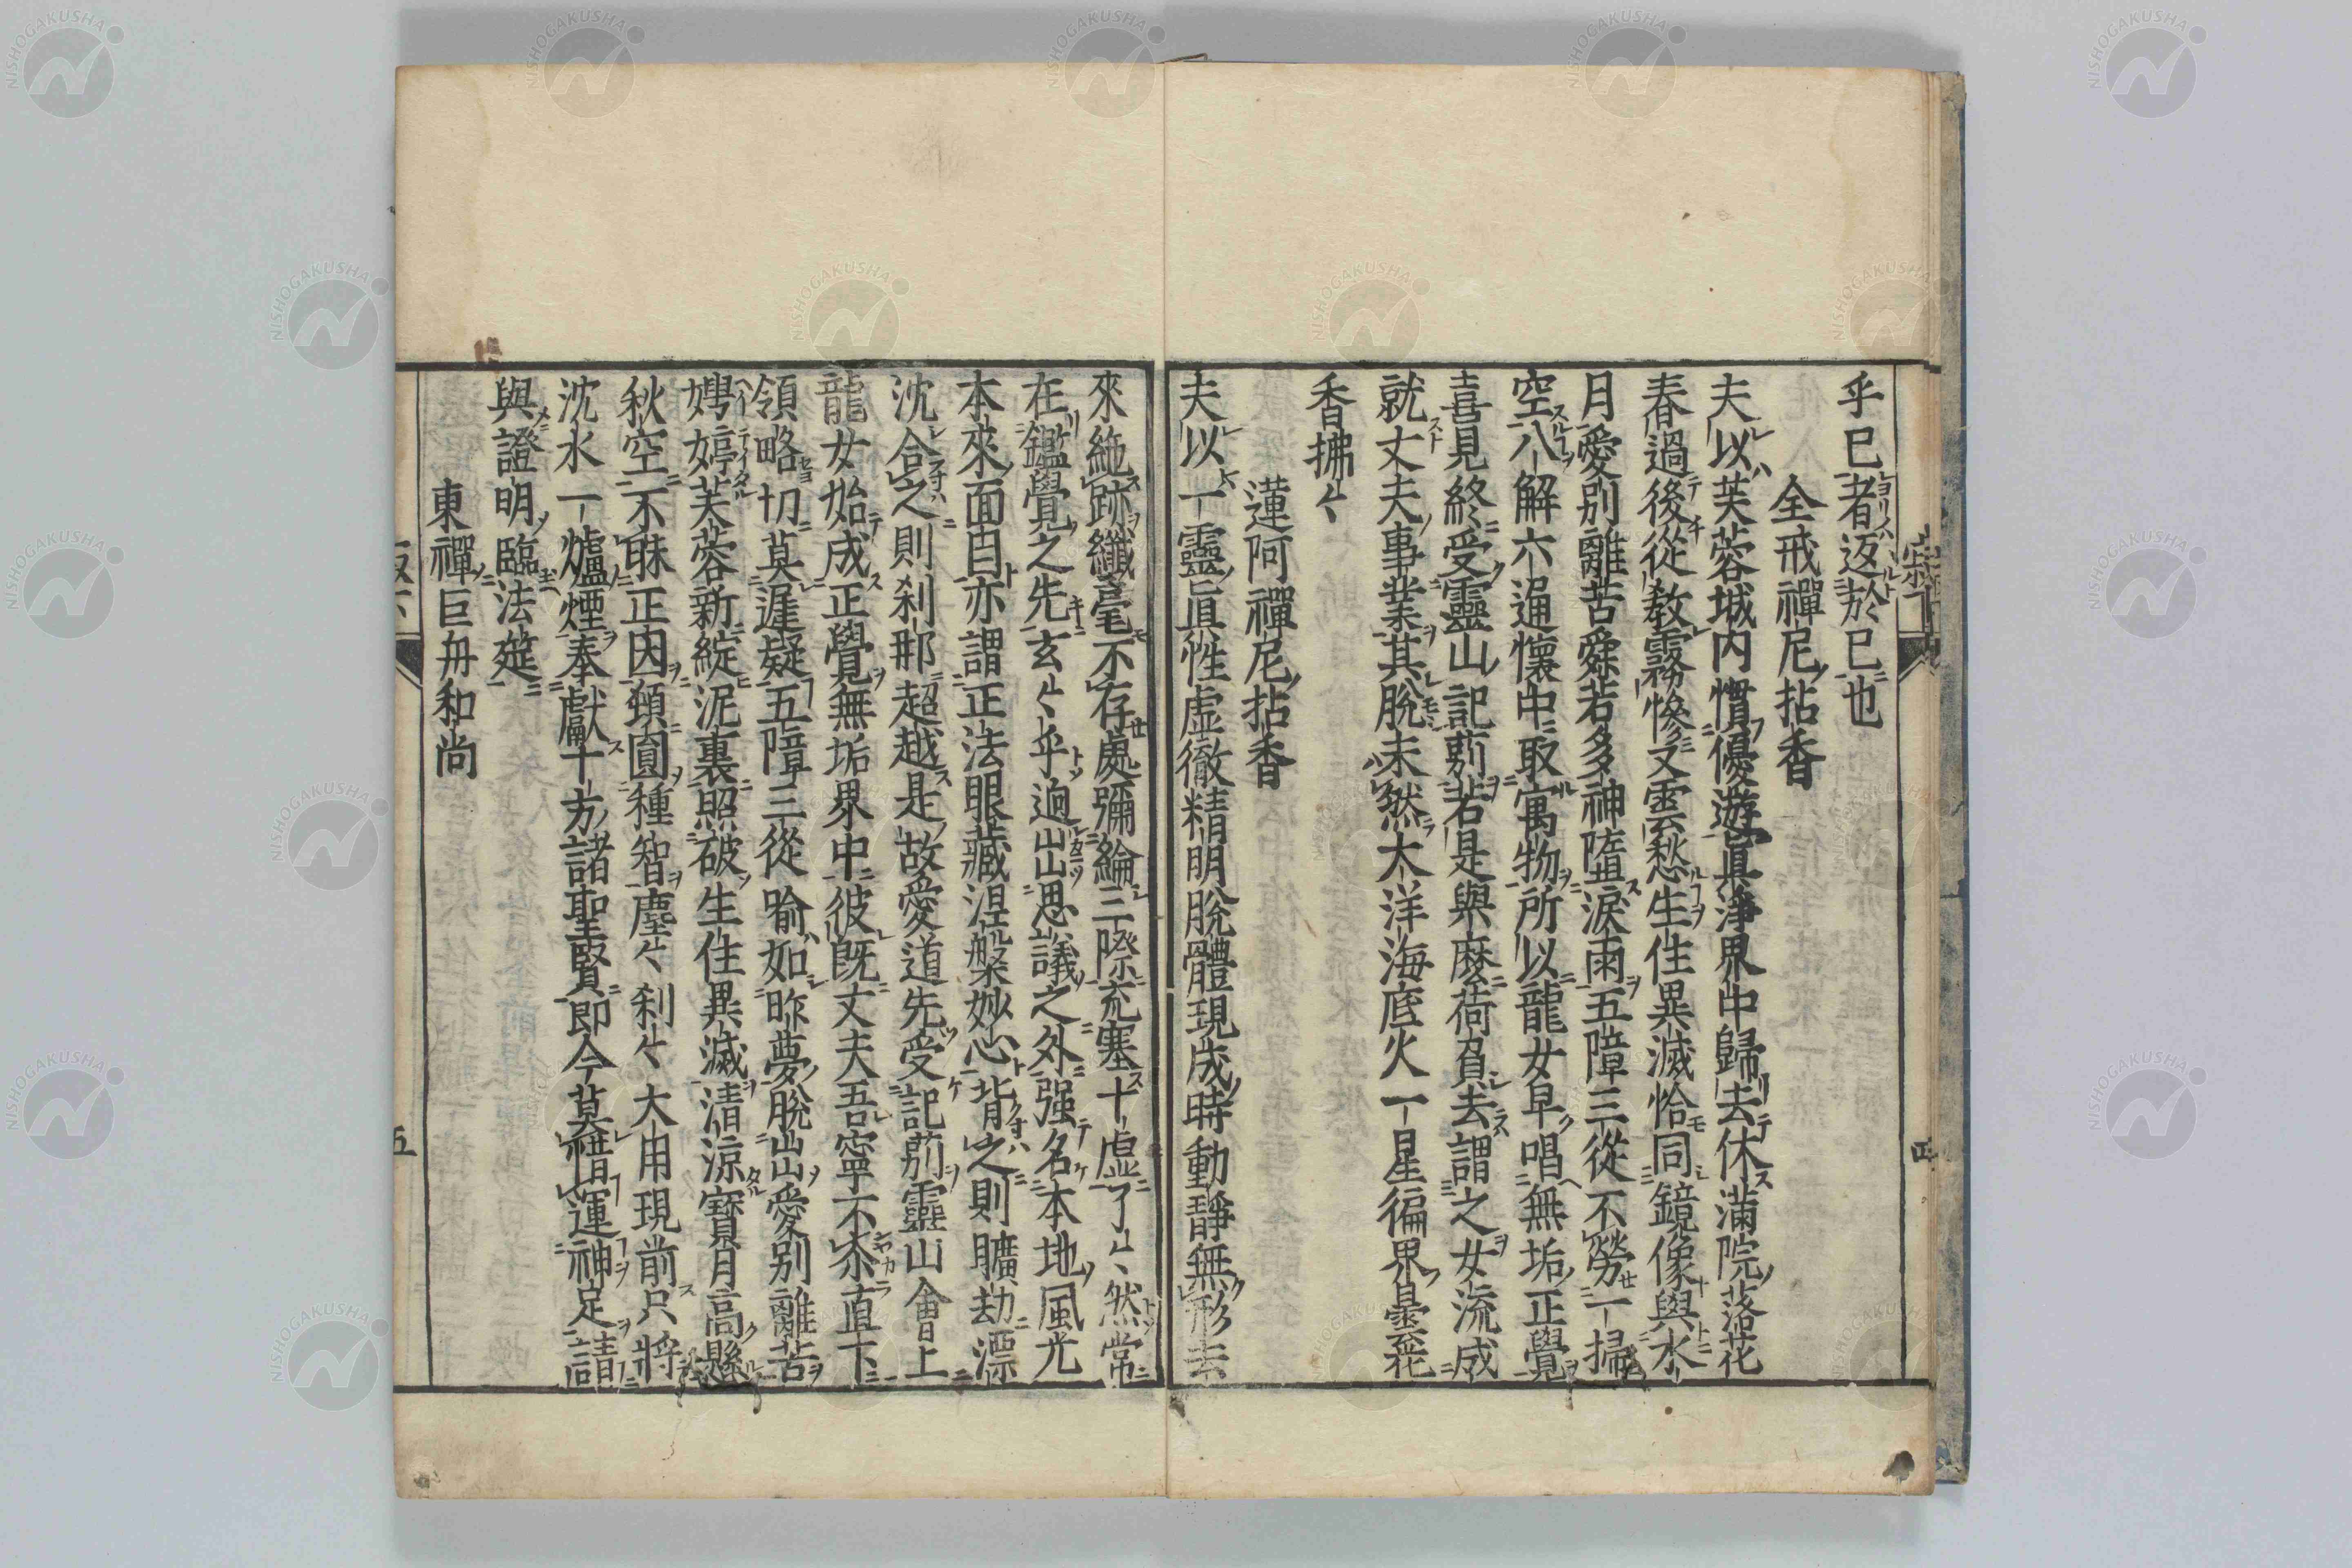 乎已者返於已也
全戒禪尼拈香
夫以芙蓉城内慣優遊眞淨界中歸去休滿院落花
春過後從教霧慘又雲愁生住異滅恰同鏡像與水
月愛別離苦舜若多神墮淚雨五障三從不勞一掃
空八解六通懷中取寓物所以龍女早唱無垢正覺
喜見終受靈山記莂若是與麼荷負去謂之女流成
就丈夫事業其脫未然大洋海底火一星徧界曇花
香拂々
蓮阿禪尼拈香
夫以一靈眞性虛徹精明脫體現成時動靜無形去
來絶跡纖毫不存處彌綸三際充塞十虛了々然常
在鑑覺之先玄々乎逈出思議之外强名本地風光
本來面目亦謂正法眼藏涅槃妙心背之則曠劫漂
沈合之則刹那超越是故愛道先受記莂靈山會上
龍女始成正覺無垢界中彼既丈夫吾寧不尒直下
領略切莫遲疑五障三從喻如昨夢脫出愛別離苦
娉婷芙蓉新綻泥裏照破生住異滅清涼寶月高懸
秋空不昧正因頓圓種智塵々刹々大用現前只將
沈水一爐煙奉獻十方諸聖賢即今莫惜運神足請
與證明臨法筵
東禪巨舟和尚